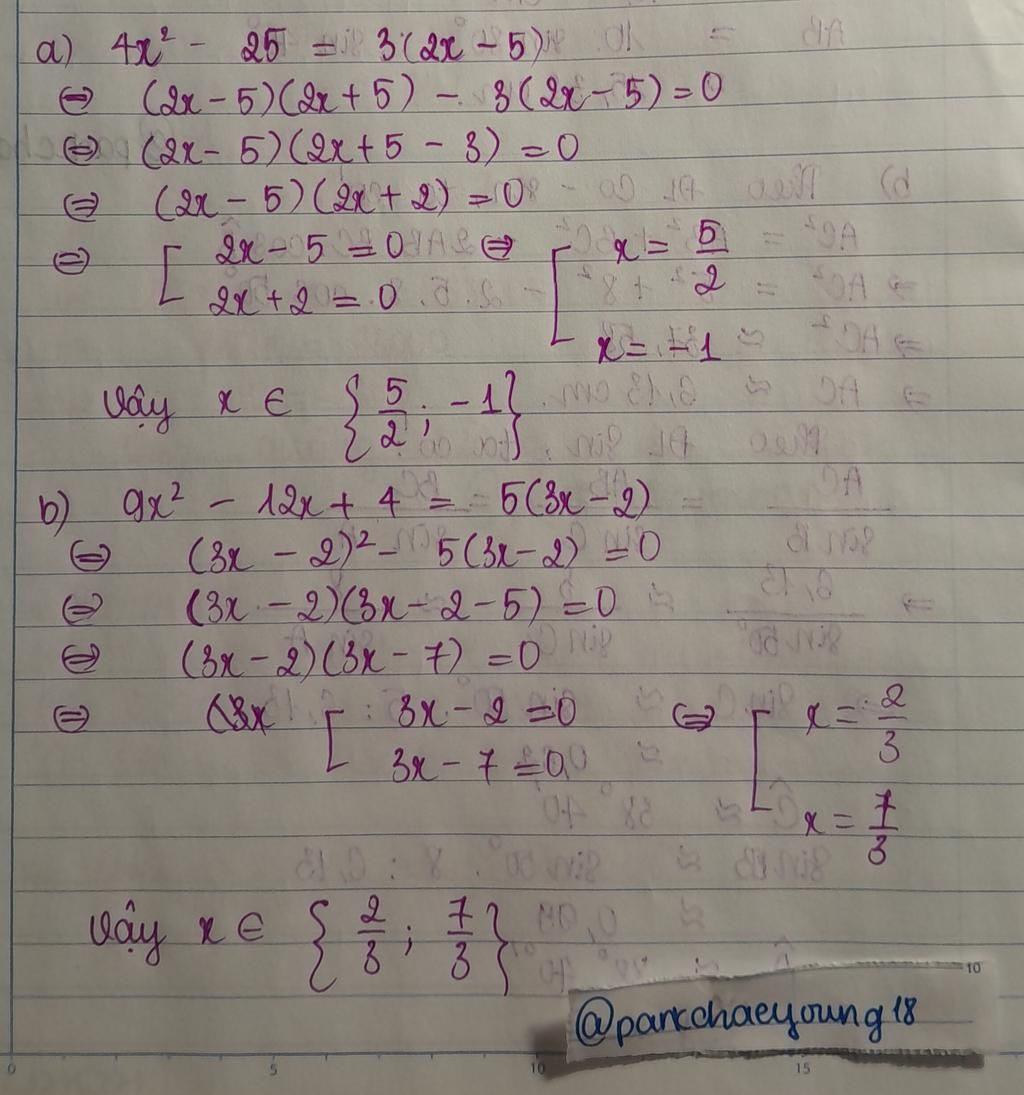 a) 4x² - 25 = 3(2x - 5)
⇔ (2x - 5)(2x + 5) - 3(2x - 5) = 0
⇔ (2x - 5)(2x + 5 - 3) = 0
⇔ (2x - 5)(2x + 2) = 0
⇔ [ 2x - 5 = 0 ⇔ [ x = 5/2
2x + 2 = 0
x = -1
Vậy x ∈ { 5/2 ; -1 }
b) 9x² - 12x + 4 = 5(3x - 2)
⇔ (3x - 2)² - 5(3x - 2) = 0
⇔ (3x - 2)(3x - 2 - 5) = 0
⇔ (3x - 2)(3x - 7) = 0
⇔ (3x [ 3x - 2 = 0 ⇔ [ x = 2/3
3x - 7 = 0
x = 7/3
Vậy x ∈ { 2/3 ; 7/3 }
10
@parkchaeyoung18
0 5 10 15